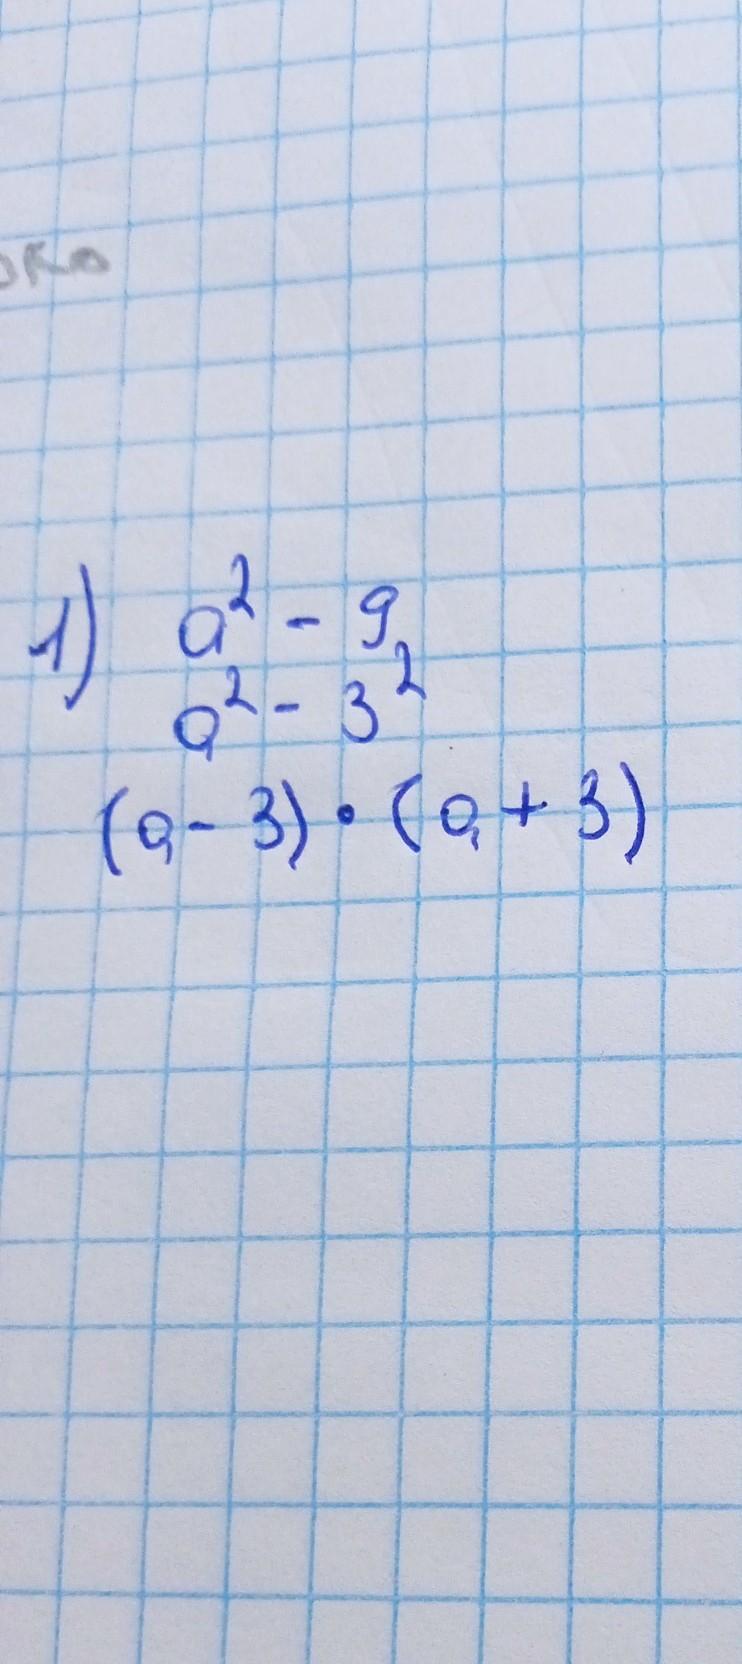 1) a² - 9
a² - 3²
(a - 3) • (a + 3)